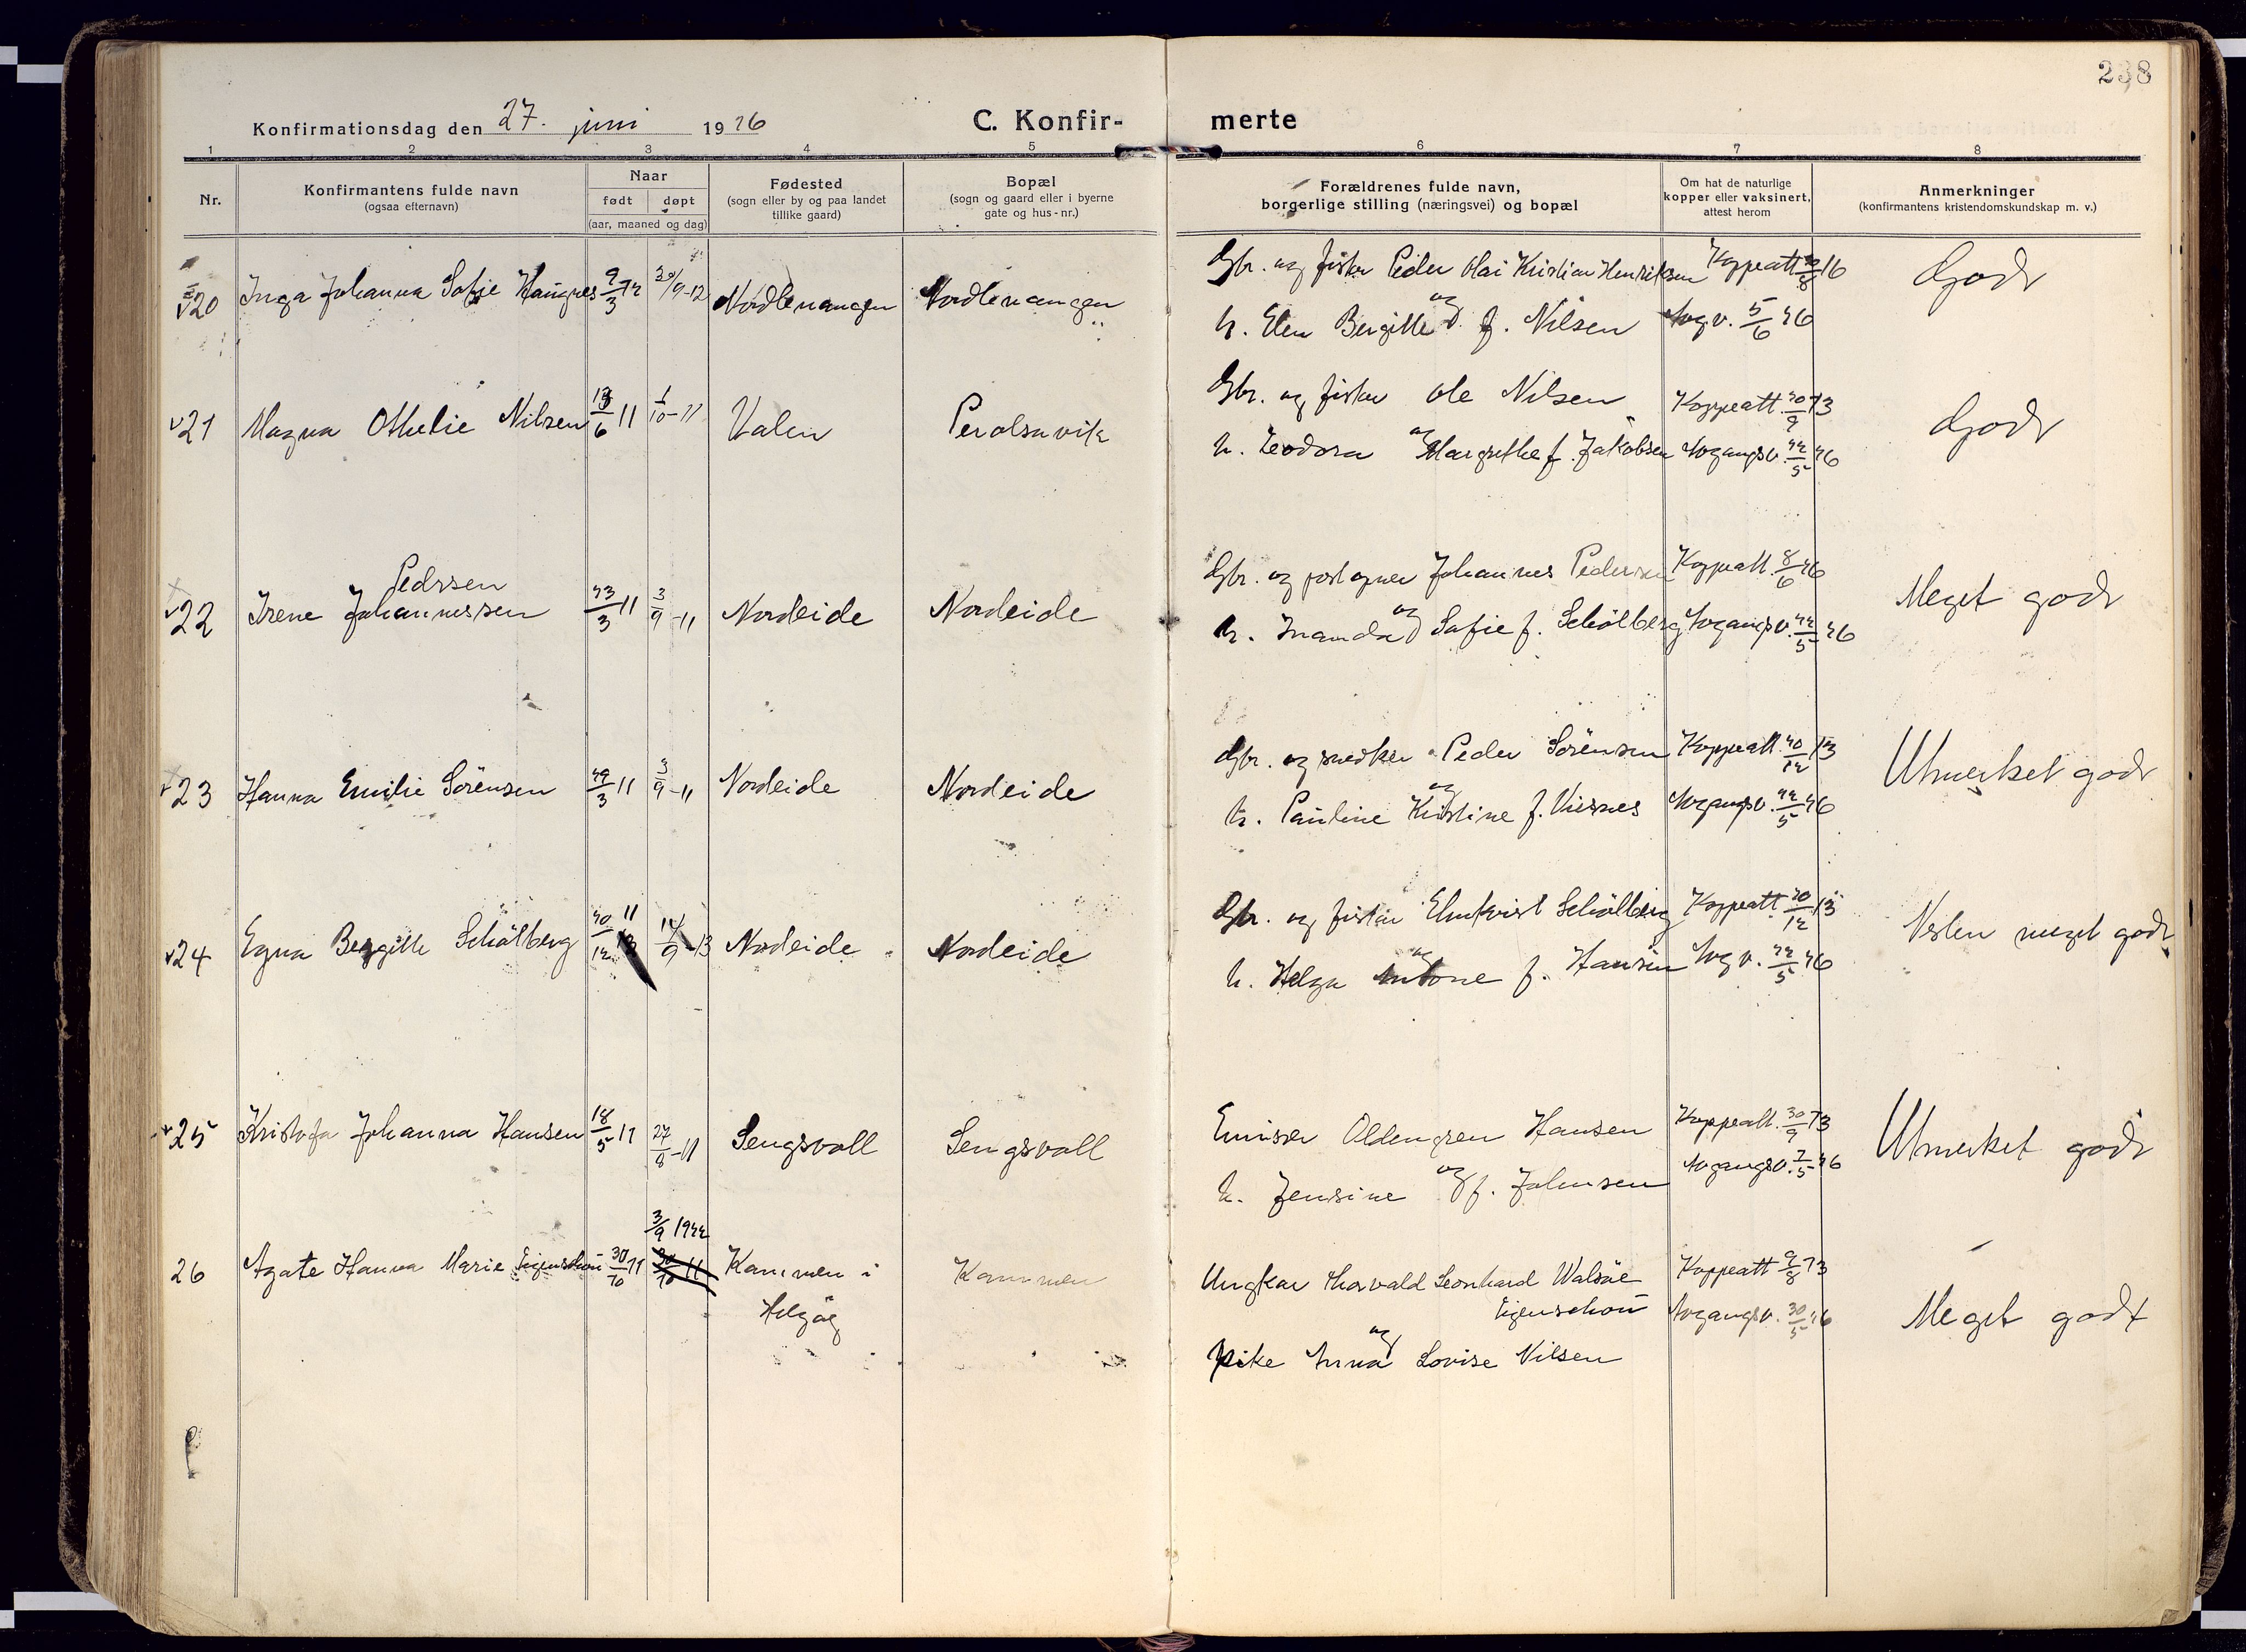 238
Konfirmationsdag den 27. juni 1926
C. Konfir- merte
1 2 3 4 5 6 7 8
Nr.
Konfirmantens fulde navn
(ogsaa efternavn)
Naar
født døpt
(aar, maaned og dag)
Fødested
(sogn eller by og paa landet
tillike gaard)
Bopæl
(sogn og gaard eller i byerne
gate og hus-nr.)
Forældrenes fulde navn,
borgerlige stilling (næringsvei) og bopæl
Om hat de naturlige
kopper eller vaksinert,
attest herom
Anmerkninger
(konfirmantens kristendomskundskap m. v.)
Gbr. og fisker Peder Olai Kristian Henriksen Koppeatt 16
20 Inga Johanna Sofie Hamnes 9/3 12 30/9-12 Nordlenangen Nordlenangen Godt
og
h. Elen Bergitte f. Nilsen Avg v. 5/6 26
Gbr. og fisker Ole Nilsen Koppeatt. 20/9 13
21 Magna Othelie Nilsen 13/6 11 1/10-11 Valen Perolsavik Godt
og
h. Teodora Margrethe f. Jakobsen Avgangsv. 22/5 26
Pedersen
Gbr. og postopner Johannes Pedersen Koppeatt. 8/6 26
22 Irene Johannessen 23/3 11 3/9-11 Nordeide Nordeide Meget godt
og
h. Inanda Sofie f. Schölberg Avgangsv. 22/5 26
Gbr. og snedker Peder Sörensen Koppeatt. 20/12 13
23 Hanna Emilie Sörensen 29/3 11 3/9-11 Nordeide Nordeide Utmerket godt
og
h. Pauline Kristine f. Avgangsv. 22/5 26
Gbr. og fisker Elmkvist Schölberg Koppeatt 20/12 13
24 Egna Bergitte Schölberg 20/12 11 14/9-13 Nordeide Nordeide Nesten meget godt
og
h. Helga Antone f. Hansen Avg v. 22/5 26
Emissær Oldengren Hansen Koppeatt. 30/9 13
25 Kristofa Johanna Hansen 18/5 11 27/8-11 Sengsvoll Sengsvoll Utmerket godt
og
h. Jensine f. Johnsen Avgangsv. 7/5 26
3/9 1922
26 Agate Hanna Marie Eigenschou 30/10 11 Kammen i Kammen
Helgöy
Ungkar Thorvald Leonhard Walsöe Koppeatt 9/8 13
Eigenschou Avgangsv. 30/5 26 Meget godt
og
pike Anna Lovise Nilsen